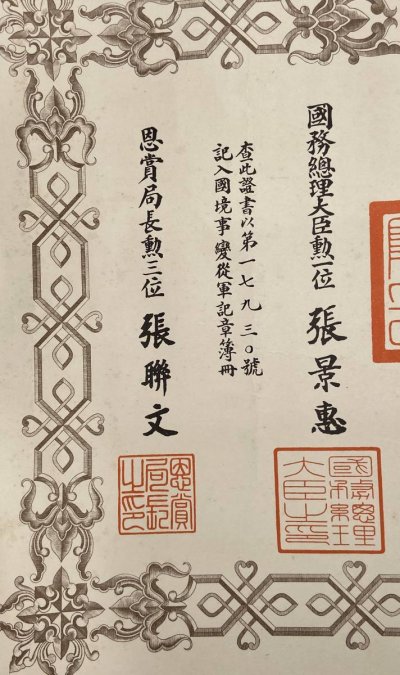 國務總理大臣勲一位 張景惠
國務總理大臣之印
查此證書以第一七九三〇號
記入國境事變從軍記章簿冊
恩賞局長勲三位 張聯文
恩賞局長之印